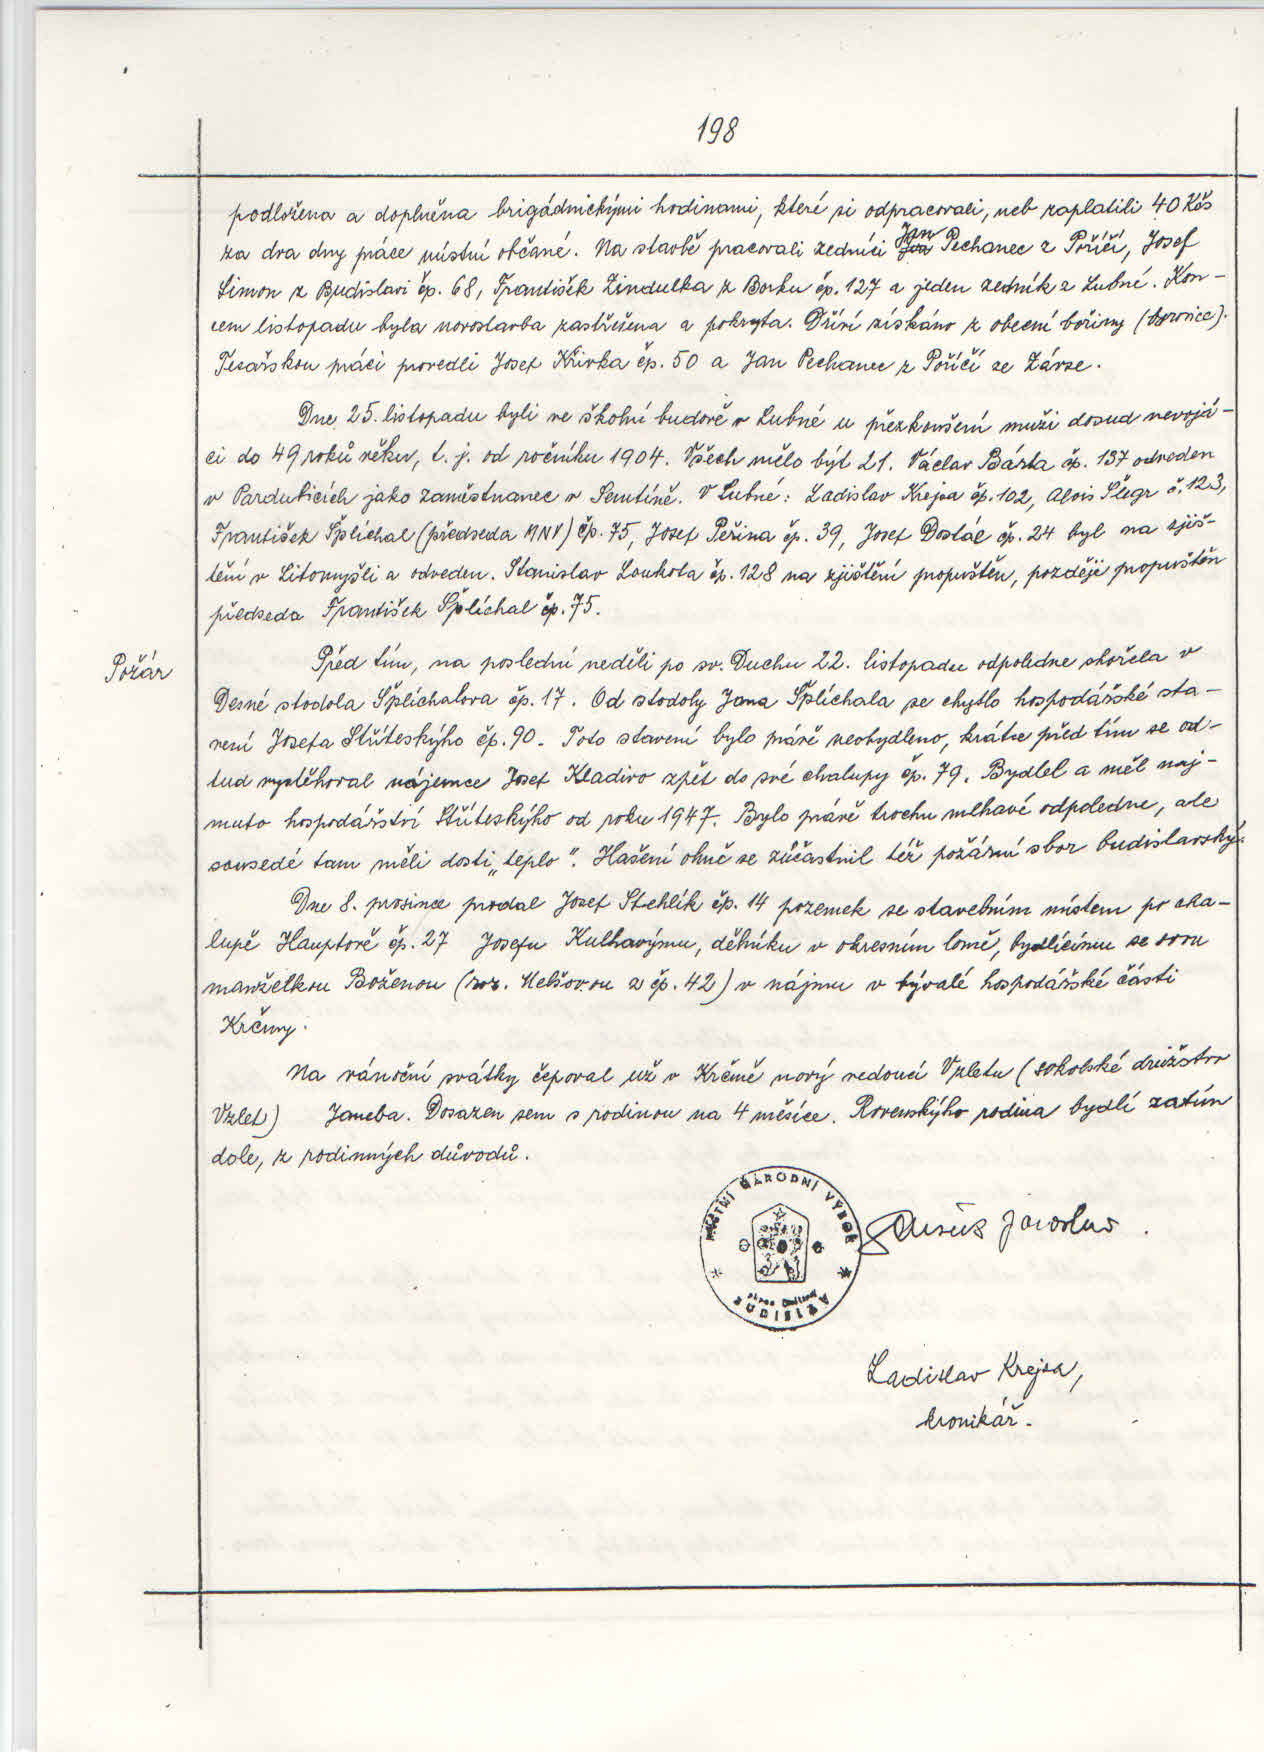 198
podložena a doplněna brigádnickými hodinami, které si odpracovali, neb zaplatili 40 Kčs
za dva dny práce místní občané. Na stavbě pracovali zedníci Jan Pechanec z Poříčí, Josef
Šimon z Budislavi čp. 68, František Zindulka z Borku čp. 127 a jeden zedník z Lubné. Kon-
cem listopadu byla novostavba zastřešena a pokryta. Dříví získáno z obecní bořiny (borovice).
Tesařskou práci provedli Josef Křivka čp. 50 a Jan Pechanec z Poříčí ze Zárze.
Dne 25. listopadu byli ve školní budově v Lubné u přezkoušení muži dosud nevojá-
ci do 49 roků věku, t. j. od ročníku 1904. Všech mělo být 21. Václav Bárta čp. 137 odveden
v Pardubicích jako zaměstnanec v Semtíně. V Lubné: Ladislav Krejsa čp. 102, Alois Šlegr č. 123,
František Šplíchal (předseda MNV) čp. 75, Josef Peřina čp. 39, Josef Dostál čp. 24 byl na zjiš-
tění v Litomyšli a odveden. Stanislav Loukota čp. 128 na zjištění propuštěn, později propuštěn
předseda František Šplíchal čp. 75.
Požár
Před tím, na poslední neděli po sv. Duchu 22. listopadu odpoledne shořela v
Desné stodola Šplíchalova čp. 17. Od stodoly Jana Šplíchala se chytlo hospodářské sta-
vení Josefa Stříteskýho čp. 90. Toto stavení bylo právě neobydleno, krátce před tím se od-
tud vystěhoval nájemce Josef Kladivo zpět do své chalupy čp. 79. Bydlel a měl naj-
muto hospodářství Stříteskýho od roku 1947. Bylo právě trochu mlhavé odpoledne, ale
sousedé tam měli dosti „teplo“. Hašení ohně se zúčastnil též požární sbor budislavský.
Dne 8. prosince prodal Josef Stehlík čp. 14 pozemek se stavebním místem po cha-
lupě Hauptově čp. 27 Josefu Kulhavýmu, dělníku v okresním lomě, bydlícímu se svou
manželkou Boženou (roz. z čp. 42) v nájmu v bývalé hospodářské části
Krčmy.
Na vánoční svátky čepoval už v Krčmě nový vedoucí Vzletu (sokolské družstvo
Vzlet) Janeba. Dosazen sem s rodinou na 4 měsíce. Rovenskýho rodina bydlí zatím
dole, z rodinných důvodů.
MÍSTNÍ NÁRODNÍ VÝBOR
BUDISLAV
Jaroslav
Ladislav Krejsa,
kronikář.